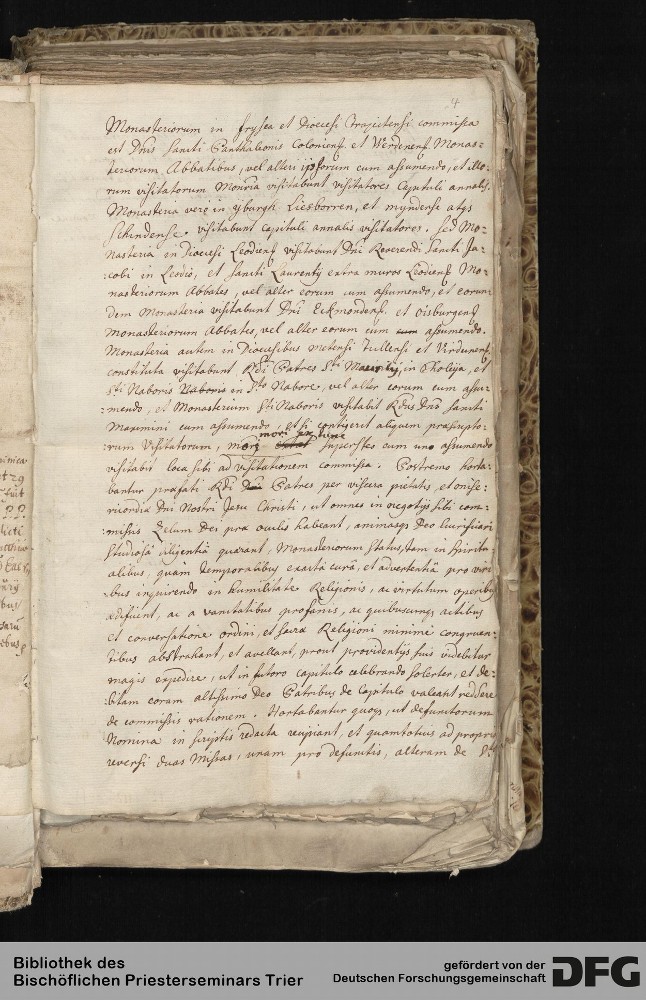 4
Monasteriorum in frysea et Dioecesi Trajectensi commissa
est Dnis Sancti Panthalionis Coloniens et Werdenens Monas=
teriorum Abbatibus, vel alteri ipsorum cum assumendo, et illo=
rum visitatorum visitabunt visitatores Capituli annalis.
Monasteria vero in yburgh Liesborren, et myndense atqs
Schindense. visitabunt capituli annalis visitatores. sed Mo=
nasteria in Dioecesi Leodiens visitabunt Dni Reverendi Sancti Ja=
cobi in Leodio, et Sancti Laurentij extra muros Leodiens Mo=
nasteriorum Abbates, vel alter eorum cum assumendo, et eorun=
dem Monasteria visitabunt Dni Eckmondens. et Oisburgens
monasteriorum Abbates, vel alter eorum cum assumendo.
Monasteria autem in Dioecesibus metensi Tullensi et Virdunens
constituta visitabunt Rdi Patres Sti in Tholeja, et
Sti Naboris Naboris in Sto Nabore, vel alter eorum cum assu=
mendo, et Monasterium Sti Naboris visitabit Rdus Dnus Sancti
Maximini cum assumendo, et si contigerit aliquem praescripto=
rum Visitatorum, mori tunc superstes cum uno assumendo
visitabit loca sibi ad visitationem commissa. Postremo horta=
bantur praefati Rdi Patres per viscera pietatis, et mise=
ricordia Dni Nostri Jesu Christi, ut omnes in negotijs sibi com=
missis Zelum Dei prae oculis habeant, animasqs Deo lucrifacari
studiosa diligentia quaerant, Monasteriorum status, tam in spiritu=
alibus, quam temporalibus exacta cura, et advertentia pro viri=
bus inquirendo in humilitate Religionis, ac virtutum operibus
aedificent, ac a vanitatibus profanis, ac quibuscunqs actibus
et conversatione ordini, et sacra Religioni minime congruen=
tibus abstrahant, et avellant, prout providentijs suis videbitur
magis expedire, ut in futuro capitulo celebrando solerter, et de=
bitam coram altissimo Deo Patribus de Capitulo valeant reddere
de commissis rationem. Hortabantur quoqs, ut defunctorum
Nomina in scriptis redacta recipiant, et quamtotius ad propria
reversi duas Missas, unam pro defunctis, alteram de Sto
Bibliothek des
Bischöflichen Priesterseminars Trier
gefördert von der
Deutschen Forschungsgemeinschaft
DFG